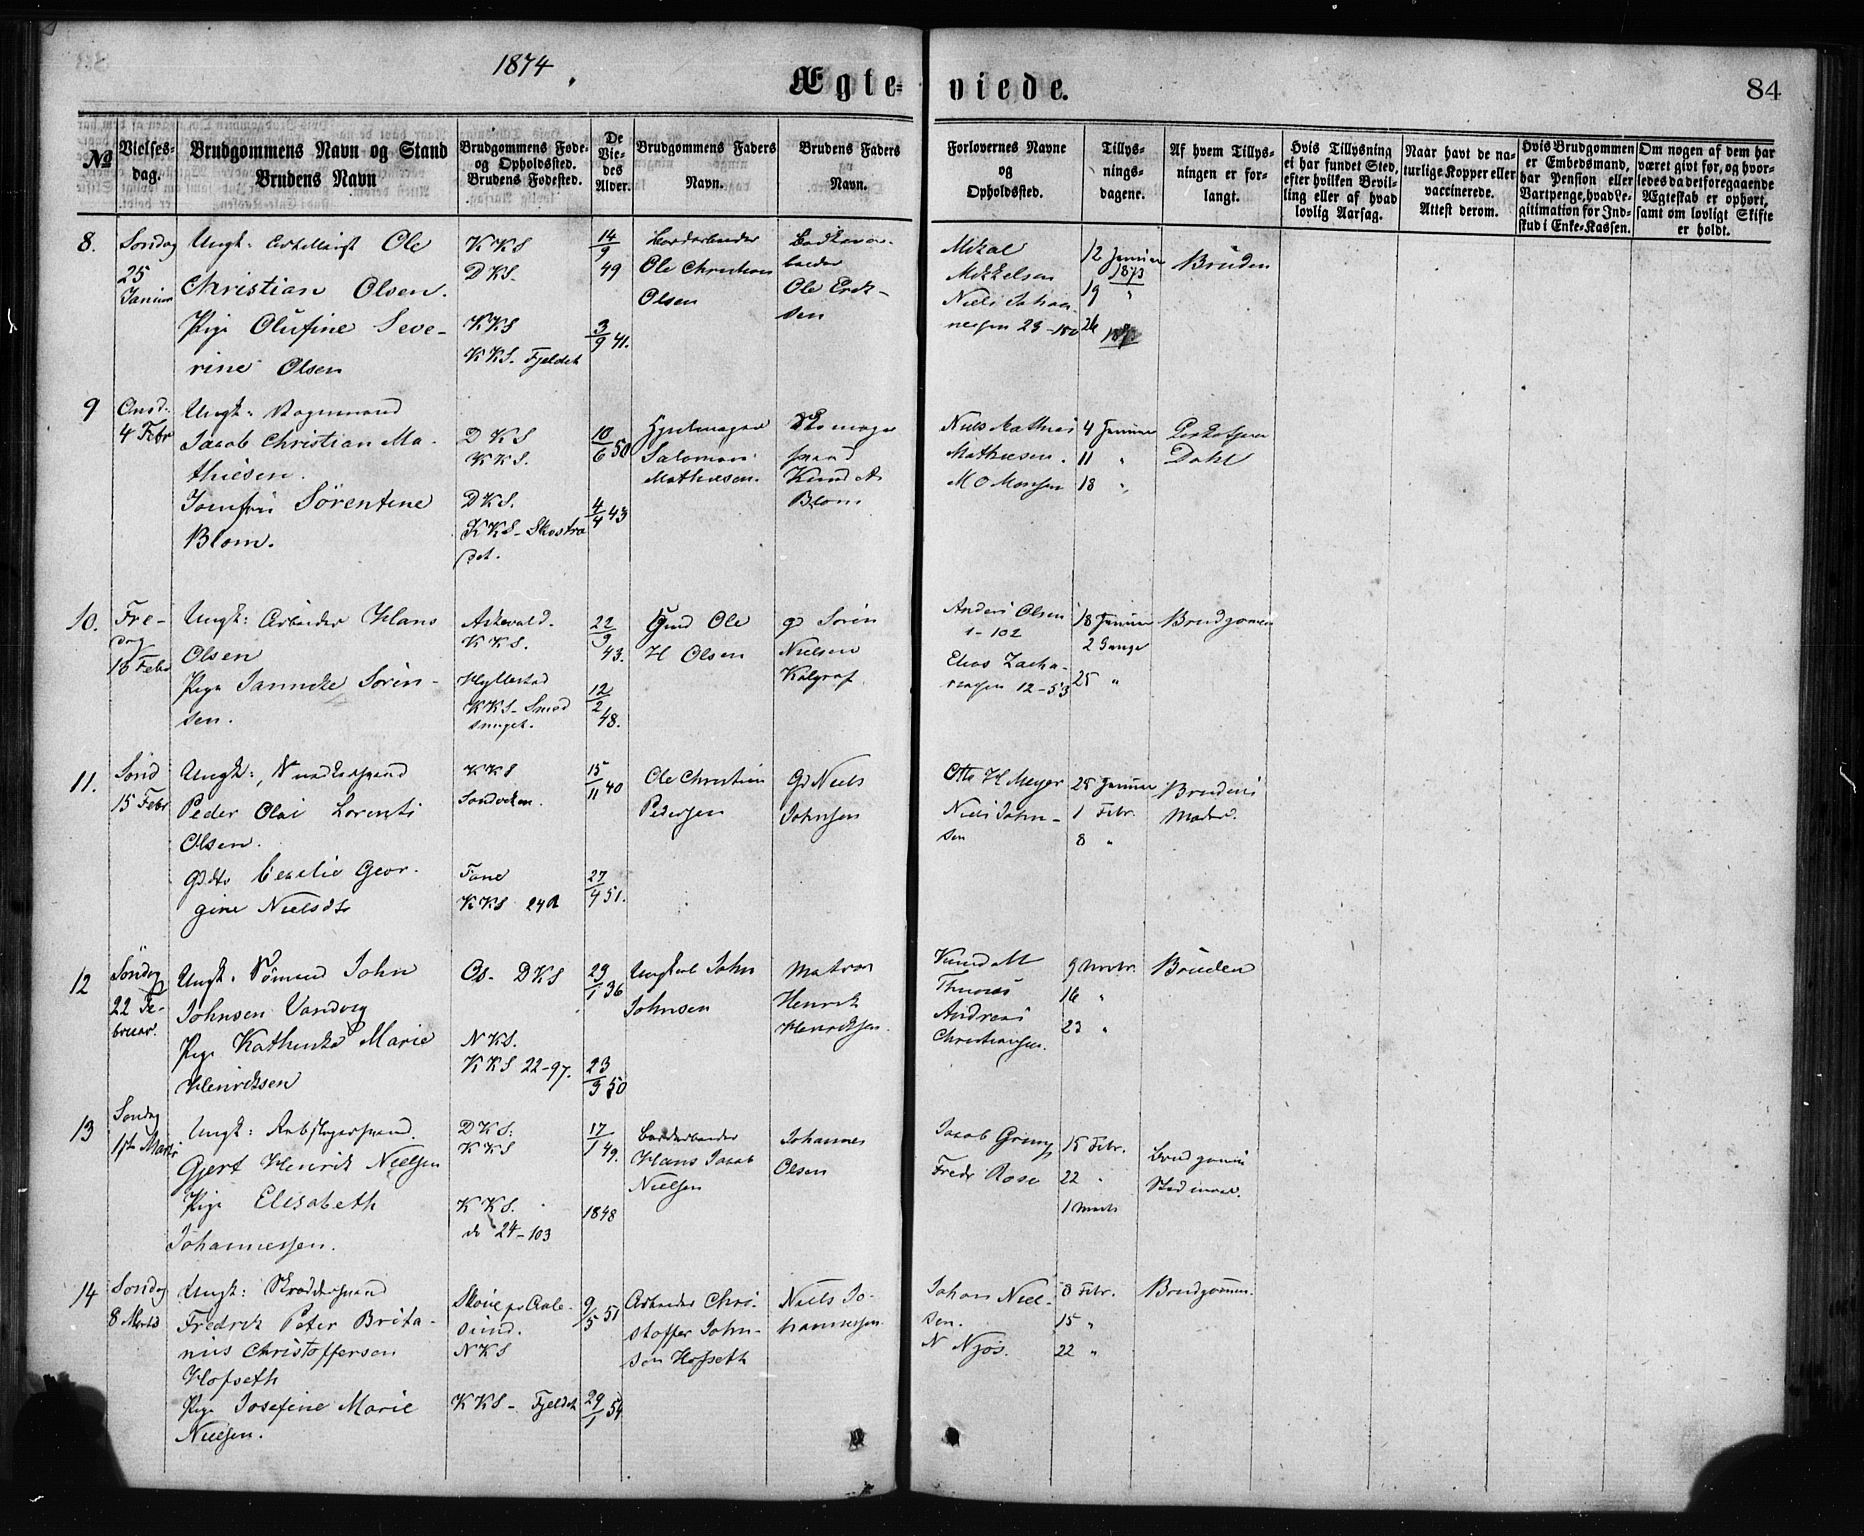 1874
Ægte-
viede.
84
№
Vielses-
dag.
Brudgommens Navn og Stand
Brudens Navn
Brudgommens Føde-
og Opholdssted.
Brudens Fødested.
De
Vie-
des
Alder.
Brudgommens Faders
Navn.
Brudens Faders
Navn.
Forlovernes Navne
og
Opholdssted.
Tillys-
nings-
dagene.
Af hvem Tillys-
ningen er for-
langt.
Hvis Tillysning
ei har fundet Sted,
efter hvilken Bevil-
ling eller af hvad
lovlig Aarsag.
Naar havt de na-
turlige Kopper eller
vaccinerede.
Attest derom.
Hvis Brudgommen
er Embedsmand,
har Pension eller
Vartpenge, hvad Le-
gitimation for Ind-
skud i Enke-Kassen.
Om nogen af dem har
været givt før, og hvor-
ledes da det foregaaende
Ægteskab er ophørt,
samt om lovligt Skifte
er holdt.
8.
Søndag
25
Ungk: Ole
Christian Olsen.
Pige Olufine Seve-
rine Olsen
KKS
DKS.
KKS
KKS. Fjeldet
14/9 49
3/9 41.
Ole Christian
Olsen
Ole Erik-
sen
Mikal
Mikkelsen
Niels Johan-
nessen
12 Januar
1873
19 "
26
Bruden
9
Onsd.
4 Febr
Ungk:
Jacob Christian Ma-
thiesen.
Jomfru Sørentine
Blom.
DKS
KKS.
DKS.
KKS-
10/6 50
4/4 43
Salomon
Mathiesen.
Knud A
Blom
Niels Mathias
Mathiesen.
M O Monsen
4 Januar
11 "
18 "
Dahl
10.
Fre-
dag
Ungk: Arbeider Hans
Olsen
Pige Jannike Søren-
sen.
Askevold.
KKS.
Hyllestad
KKS-Smed
smuget.
22/9 43.
12/2 48.
Gmd Ole
H Olsen
gd Søren
Nielsen
Anders Olsen
1-102
Elias Zacha-
riasen 12-53
18 Januar
2 Gange
25 "
Brudgomen
11.
Sønd
15 Febr
Ungk:
Peder Olai Lorents
Olsen.
Gddtr Cecilie Geor-
gine Nielsdtr
KKS
Sandviken.
Fane
KKS 24
15/11 40
27/4 51.
Ole Christian
Pedersen
Gd Niels
Johnsen
Otto H Meyer
Niels John-
sen
25 Januar
1 Febr.
8 "
Brudens
Moder.
12
Søndag
22 Fe-
bruar.
Ungk. Tømmd John
Johnsen Vandvig
Pige Kathinka Marie
Henriksen
Os- DKS
NKS.
KKS 22-97.
29/1 36
23/9 50
Ungkarl John
Johnsen
Matros
Henrik
Henriksen.
Knud M
Andreas
Christiansen.
9
16 "
23 "
Bruden
13
Søndag
1ste Marts
Ungk:
Gjert Henrik Nielsen
Pige Elisabeth
Johannessen.
DKS.
KKS
KKS.
do 24-103
17/1 49.
1848
Hans Jacob
Nielsen
Johannes
Olsen
Jacob
Fredr Rose
15 Febr.
22 "
1 Marts
14
Søndag
8 Marts
Ungk: Skrædersvend
Fredrik Peter Brita-
nius Christoffersen
Hofseth
Pige Josefine Marie
Nielsen.
Aale-
sund.
NKS
KKS- Fjeldet
9/5 51
29/1 54
Arbeider Chri-
stoffer John-
sen Hofseth
Niels Jo-
hannessen
Johan Niel-
sen.
N Njøs.
8 Febr.
15 "
22 "
Brudgommen.